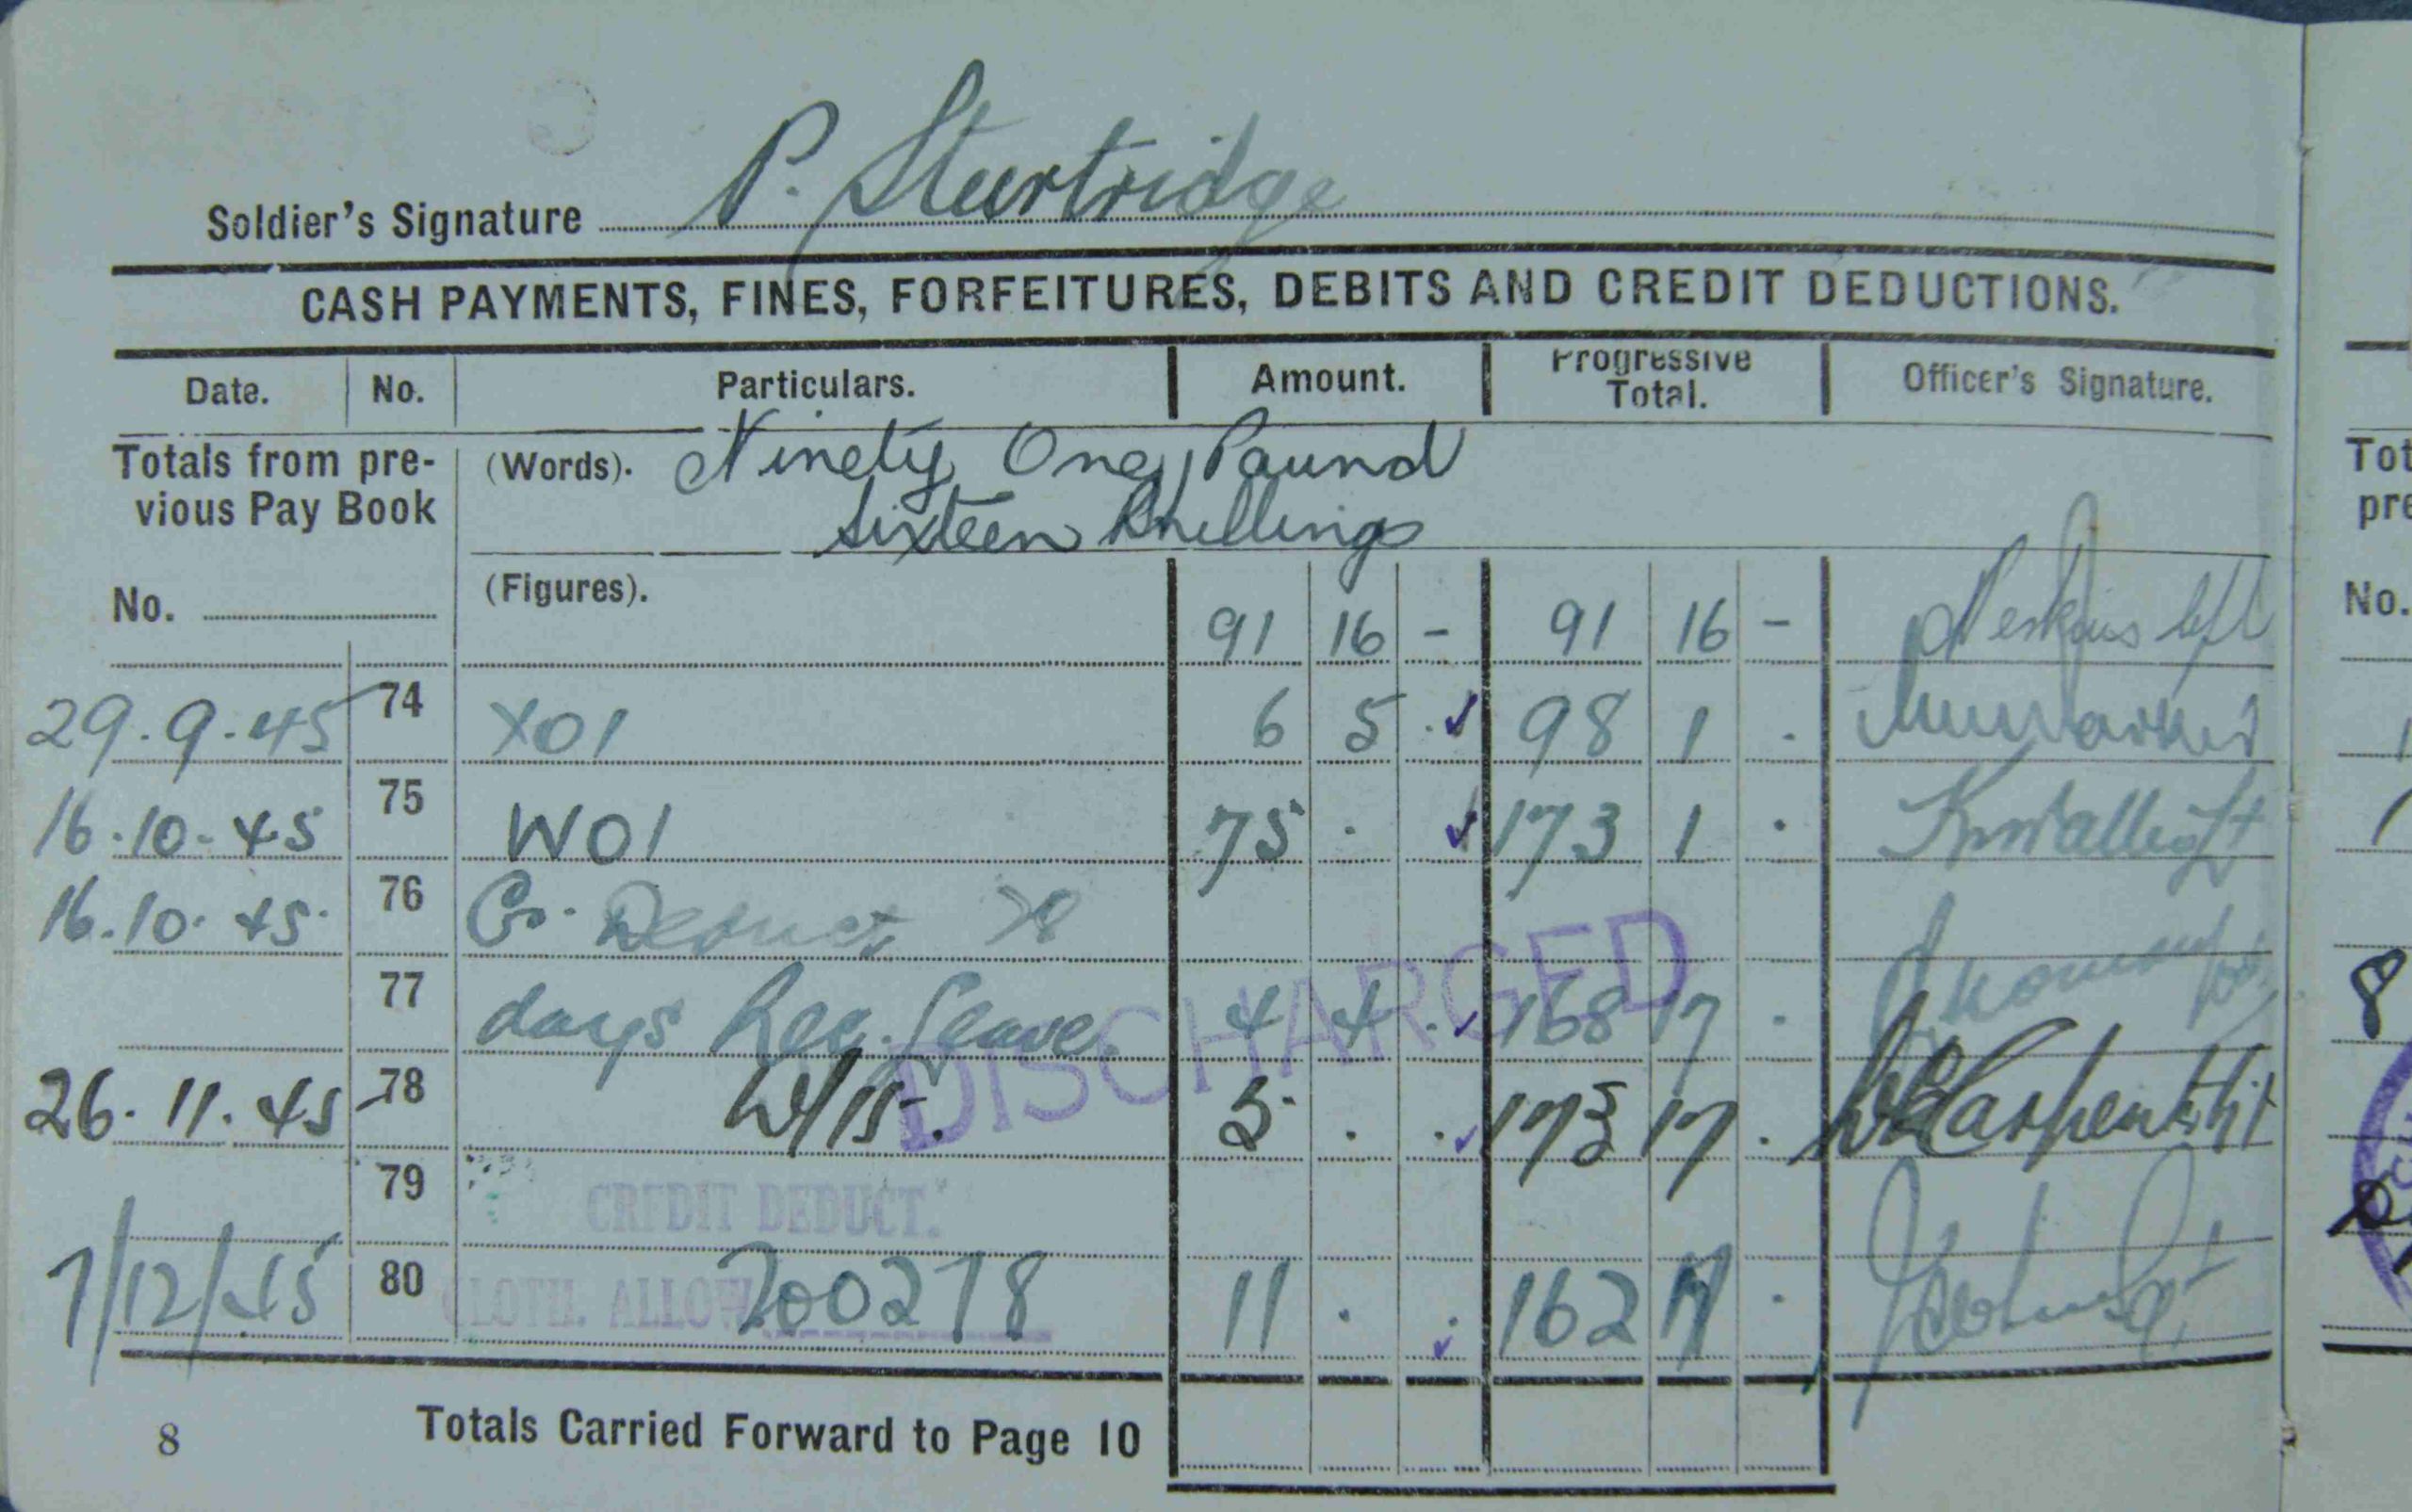 Soldier's Signature P. Sturtridge
CASH PAYMENTS, FINES, FORFEITURES, DEBITS AND CREDIT DEDUCTIONS.
Date. No. Particulars. Amount. Progressive Total. Officer's Signature.
Totals from pre- (Words). Ninety One Pound
vious Pay Book Sixteen Shillings
No. (Figures). 91 16 - 91 16 -
29.9.45 74 X01 6 5 . 98 1 .
16.10.45 75 W01 75 . 173 1 .
16.10.45. 76 Cr. Deduct
77 days Rec. Leave. 4 4 . 168 17 .
DISCHARGED
26.11.45 78 W/15. 5 . . 173 17 . Carpenter Lt
79 CREDIT DEDUCT.
7/12/45 80 CLOTH. ALLOW. 200278 11 . . 162 17 .
8 Totals Carried Forward to Page 10
Tot
pre
No.
8